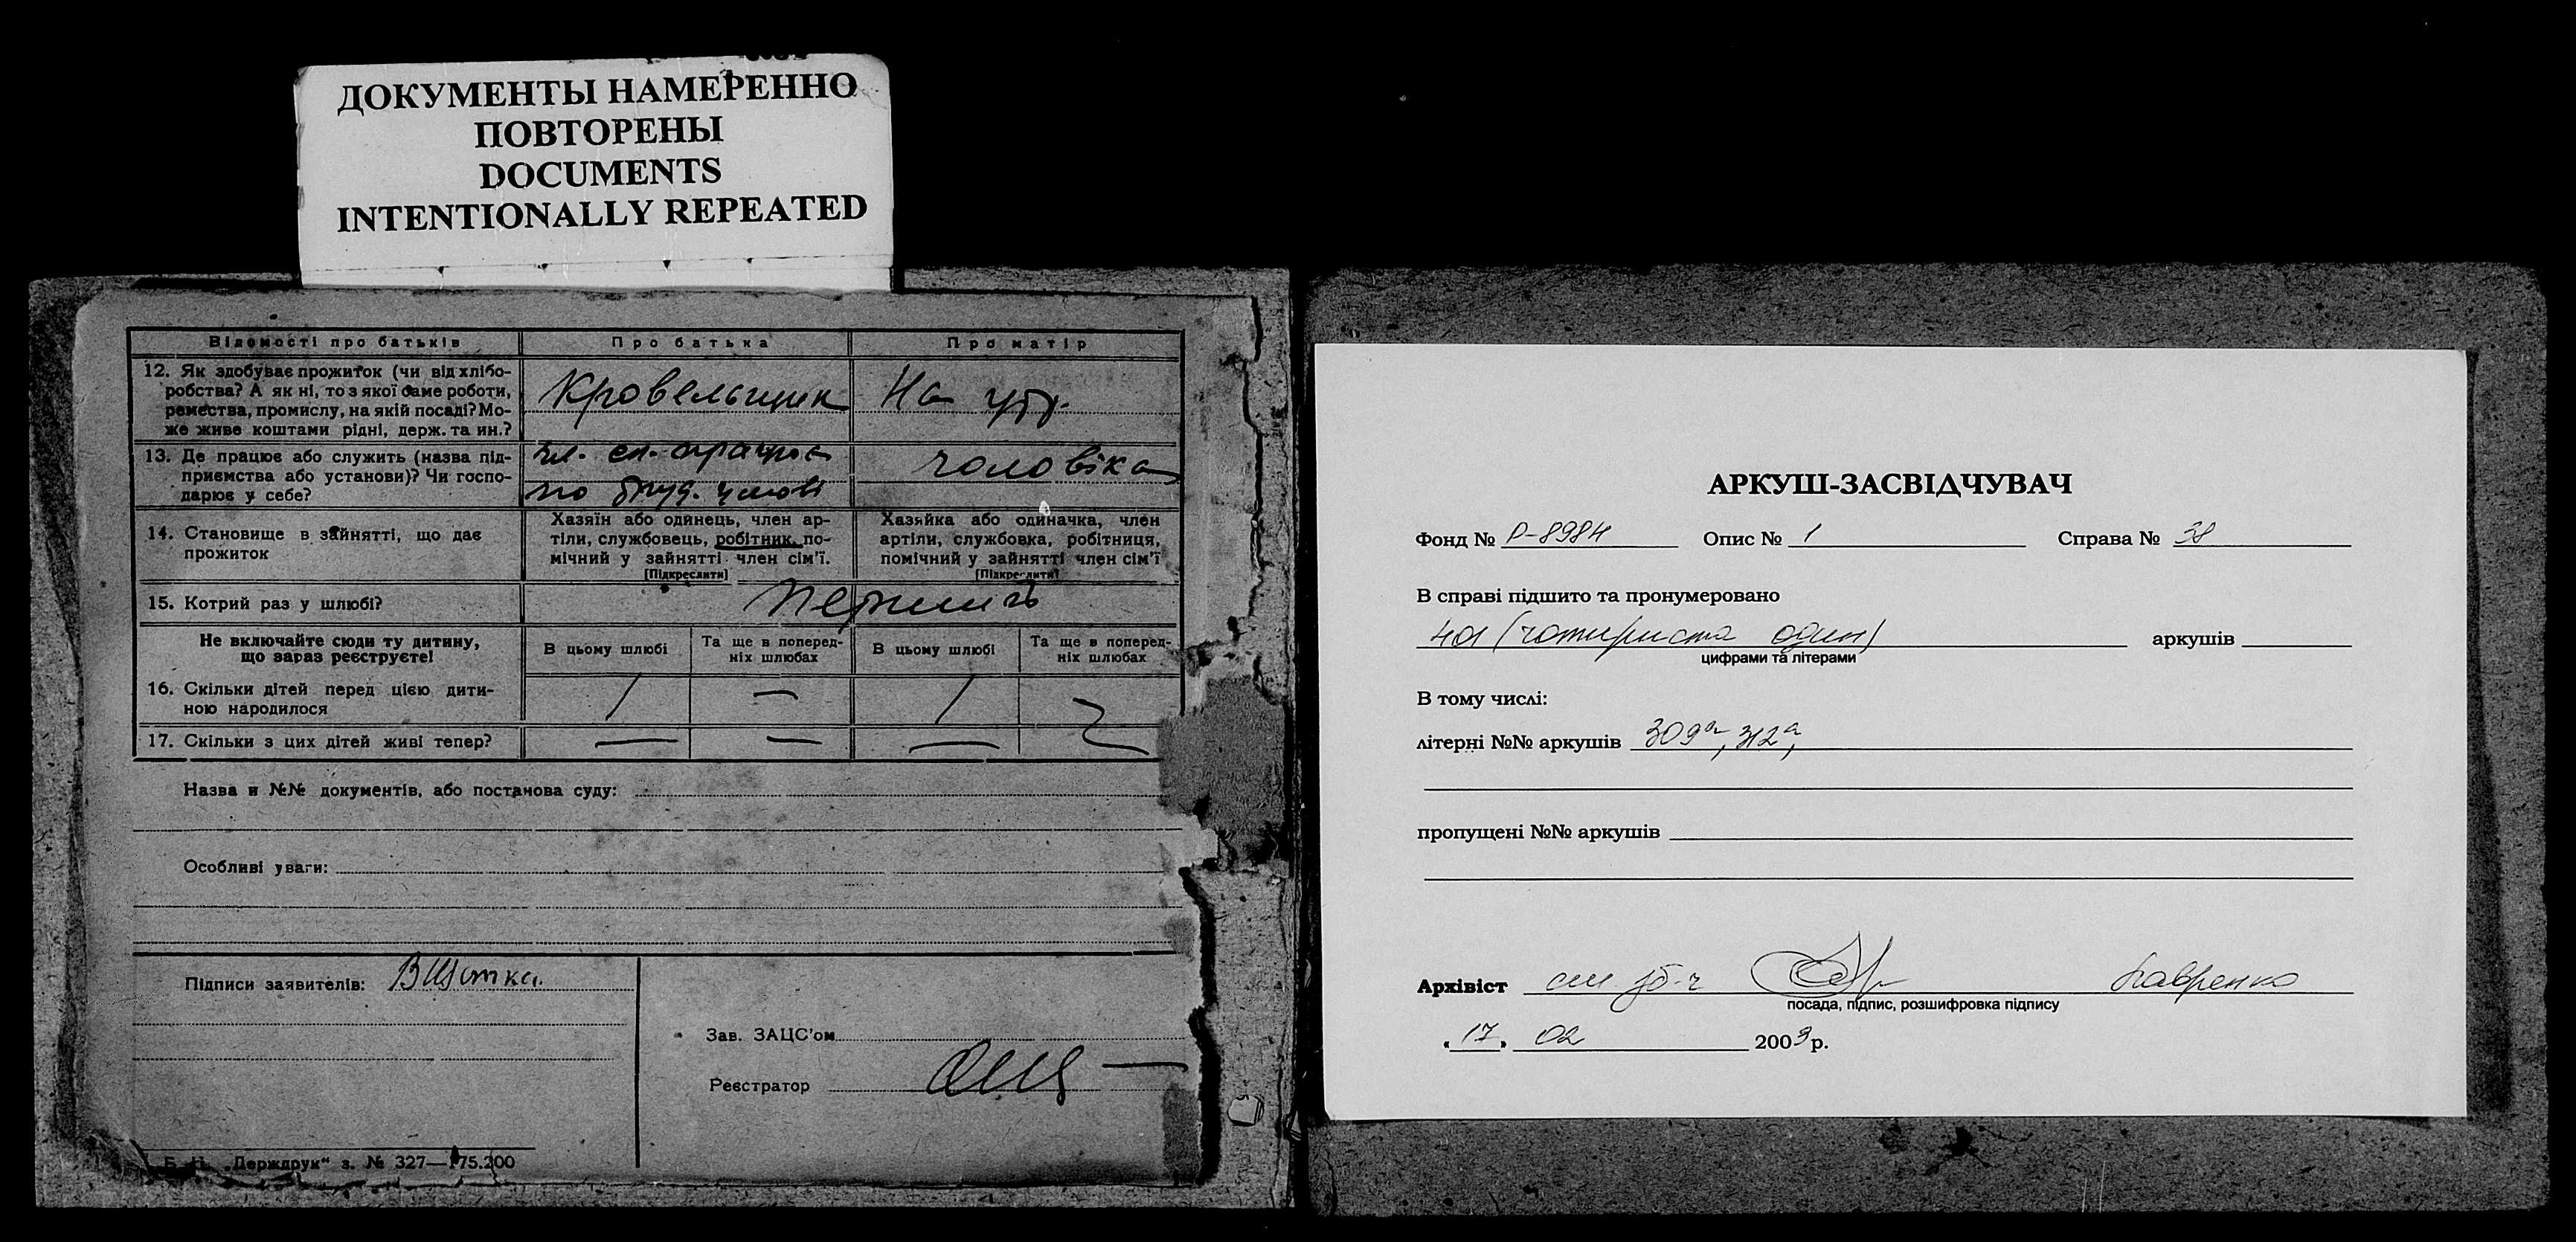 ДОКУМЕНТЫ НАМЕРЕННО
ПОВТОРЕНЫ
DOCUMENTS
INTENTIONALLY REPEATED
Відомості про батьків
Про батька
Про матір
12. Як здобуває прожиток (чи від хлібо-
робства? А як ні, то з якої саме роботи,
ремества, промислу, на якій посаді? Мо-
же живе коштами рідні, держ. та ин.?
Кровельщик
На утр.
13. Де працює або служить (назва під-
приємства або установи)? Чи госпо-
дарює у себе?
чл. сп. працює
по труд. умові
чоловіка
14. Становище в зайнятті, що дає
прожиток
Хазяїн або одинець, член ар-
тіли, службовець, робітник, по-
мічний у зайнятті член сім'ї.
[Підкреслити]
Хазяйка або одиначка, член
артіли, службовка, робітниця,
помічний у зайнятті член сім'ї
[Підкреслити]
15. Котрий раз у шлюбі?
Не включайте сюди ту дитину,
що зараз реєструєте!
В цьому шлюбі
Та ще в поперед-
ніх шлюбах
В цьому шлюбі
Та ще в поперед-
ніх шлюбах
16. Скільки дітей перед цією дити-
ною народилося
1 — 1
17. Скільки з цих дітей живі тепер?
— — —
Назва и №№ документів, або постанова суду:
Особливі уваги:
Підписи заявителів:
Зав. ЗАЦС'ом
Реєстратор
Б. Ц. „Держдрук" з. № 327—175.200
АРКУШ-ЗАСВІДЧУВАЧ
Фонд № Р-8984 Опис № 1 Справа № 38
В справі підшито та пронумеровано
401 (чотириста один) аркушів
цифрами та літерами
В тому числі:
літерні №№ аркушів 309а, 312а,
пропущені №№ аркушів
Архівіст
посада, підпис, розшифровка підпису
«17» 02 2009 р.